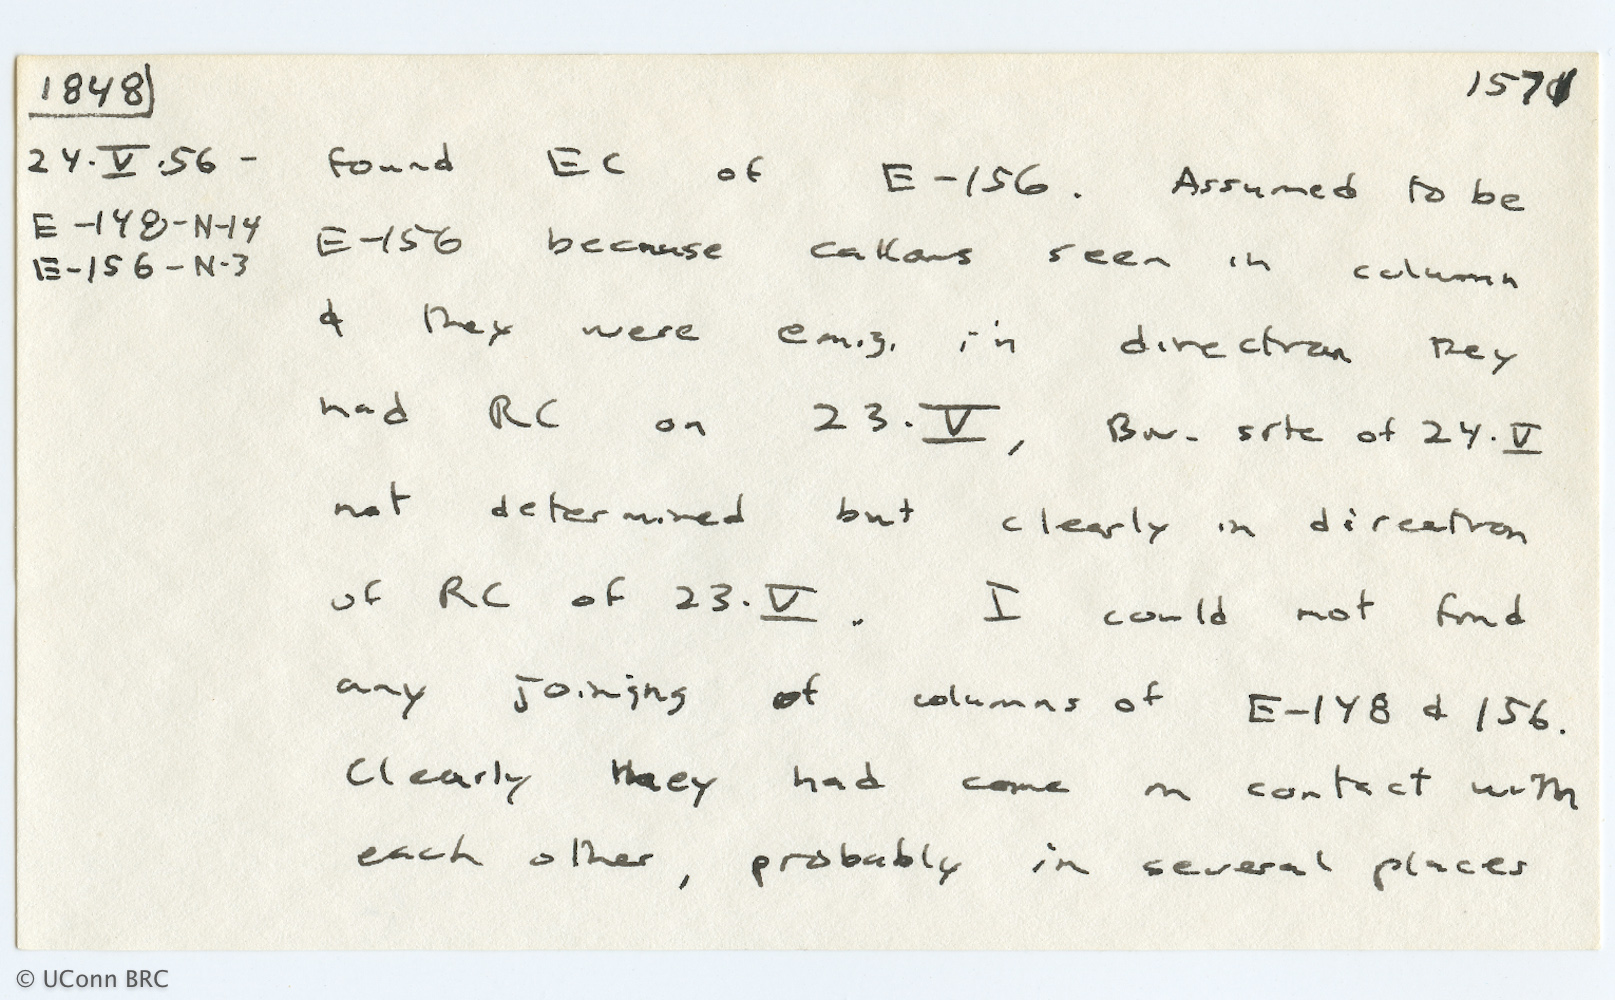 1848
157
24.V.56 - found EC of E-156. Assumed to be
E-148-N-14
E-156-N-3
E-156 because callows seen in column
& they were emig. in direction they
had RC on 23.V, Biv. site of 24.V
not determined but clearly in direction
of RC of 23.V. I could not find
any joining of columns of E-148 & 156.
Clearly they had come in contact with
each other, probably in several places
© UConn BRC